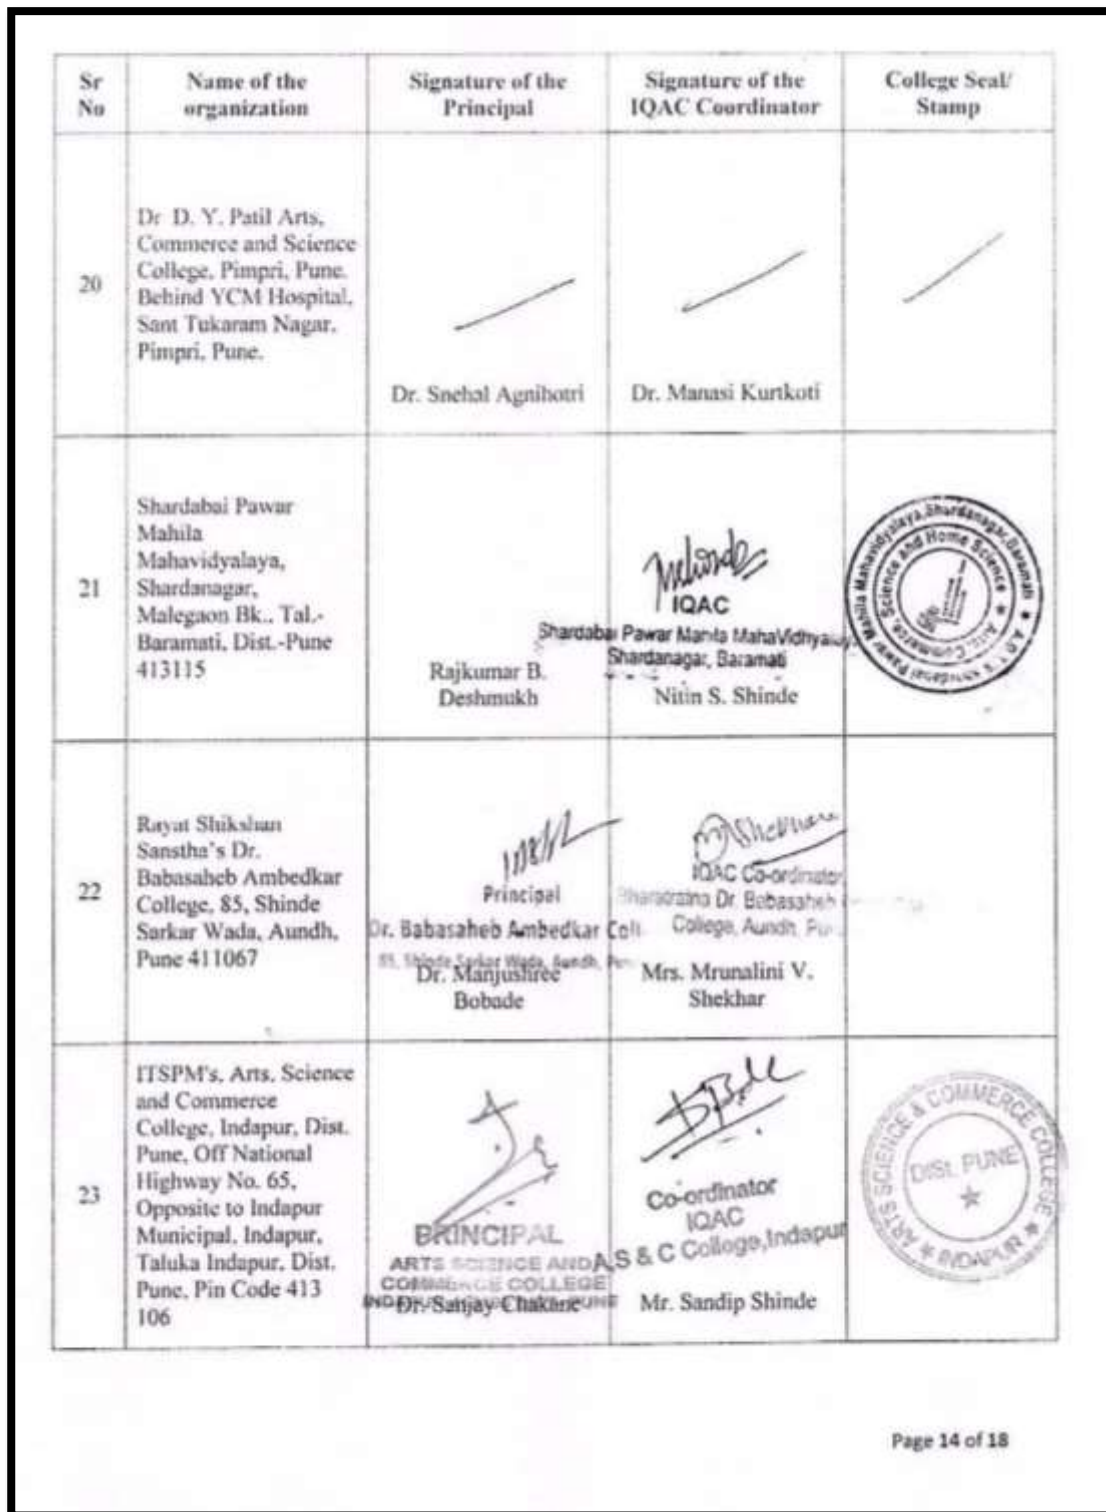 Sr No
Name of the organization
Signature of the Principal
Signature of the IQAC Coordinator
College Seal/ Stamp
20
Dr D. Y. Patil Arts,
Commerce and Science
College, Pimpri, Pune.
Behind YCM Hospital,
Sant Tukaram Nagar,
Pimpri, Pune.
Dr. Snehal Agnihotri
Dr. Manasi Kurtkoti
21
Shardabai Pawar
Mahila
Mahavidyalaya,
Shardanagar,
Malegaon Bk., Tal.-
Baramati, Dist.-Pune
413115
Rajkumar B.
Deshmukh
IQAC
Shardabai Pawar Mahila MahaVidhyalaya
Shardanagar, Baramati
Nitin S. Shinde
Mahila Mahavidyalaya, Shardanagar, Baramati
Arts, Commerce, Science and Home Science
22
Rayat Shikshan
Sanstha's Dr.
Babasaheb Ambedkar
College, 85, Shinde
Sarkar Wada, Aundh,
Pune 411067
Principal
Dr. Babasaheb Ambedkar Coll
85, Shinde Sarkar Wada, Aundh,
Dr. Manjushree
Bobade
Shekhar
IQAC Co-ordinator
Bharatratna Dr. Babasaheb
College, Aundh, Pu
Mrs. Mrunalini V.
Shekhar
23
ITSPM's, Arts, Science
and Commerce
College, Indapur, Dist.
Pune, Off National
Highway No. 65,
Opposite to Indapur
Municipal, Indapur,
Taluka Indapur, Dist.
Pune, Pin Code 413
106
PRINCIPAL
ARTS SCIENCE AND
COMMERCE COLLEGE
Dr. Sanjay Chakane
Co-ordinator
IQAC
A,S & C College,Indapur
Mr. Sandip Shinde
ARTS SCIENCE & COMMERCE COLLEGE
INDAPUR
DIST. PUNE
Page 14 of 18